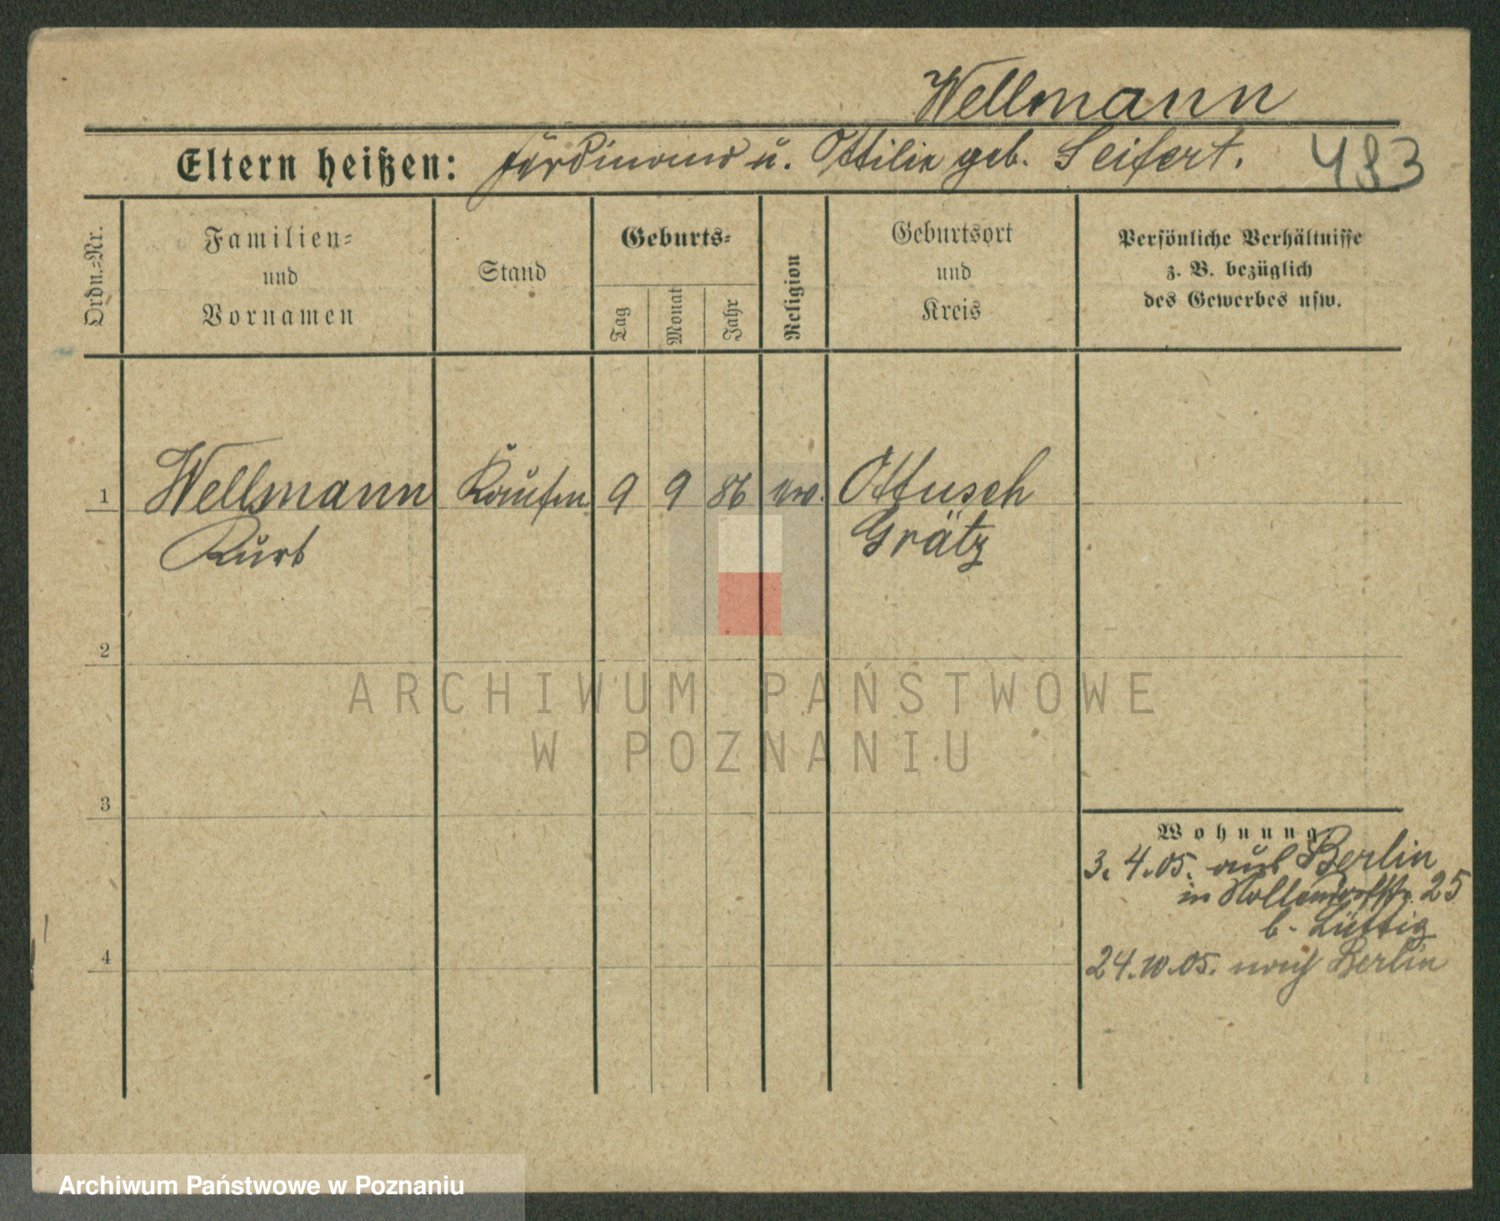 Wellmann
Eltern heißen: Ferdinand u. Ottilie geb. Seifert. 483
Ordn.-Nr.
Familien-
und
Vornamen
Stand
Geburts-
Tag
Monat
Jahr
Religion
Geburtsort
und
Kreis
Persönliche Verhältnisse
z. B. bezüglich
des Gewerbes usw.
1 Wellmann Kaufm 9 9 86 ev. Ottusch
Kurt Grätz
2
3
4
Wohnung
3.4.05. aus Berlin
in Nollendorfstr. 25
b. Lüttig
24.10.05. nach Berlin
ARCHIWUM PAŃSTWOWE
W POZNANIU
Archiwum Państwowe w Poznaniu